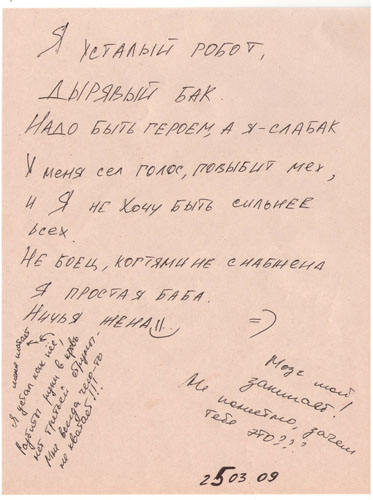 Я УСТАЛЫЙ РОБОТ,
ДЫРЯВЫЙ БАК.
НАДО БЫТЬ ГЕРОЕМ, А Я-СЛАБАК
У МЕНЯ СЕЛ ГОЛОС, ПОВЫБИТ МЕХ,
И Я НЕ ХОЧУ БЫТЬ СИЛЬНЕЕ
ВСЕХ.
НЕ БОЕЦ, КОГТЯМИ НЕ СНАБЖЕНА
Я ПРОСТАЯ БАБА.
НИЧЬЯ ЖЕНА!! =)
меня
Я
как нее,
Разбиты руки в кровь
нет третьей
Мне всегда чего-то
не хватает!!!
Мозг мой
закипает!
Не понятно, зачем
тебе это???
25 03 09